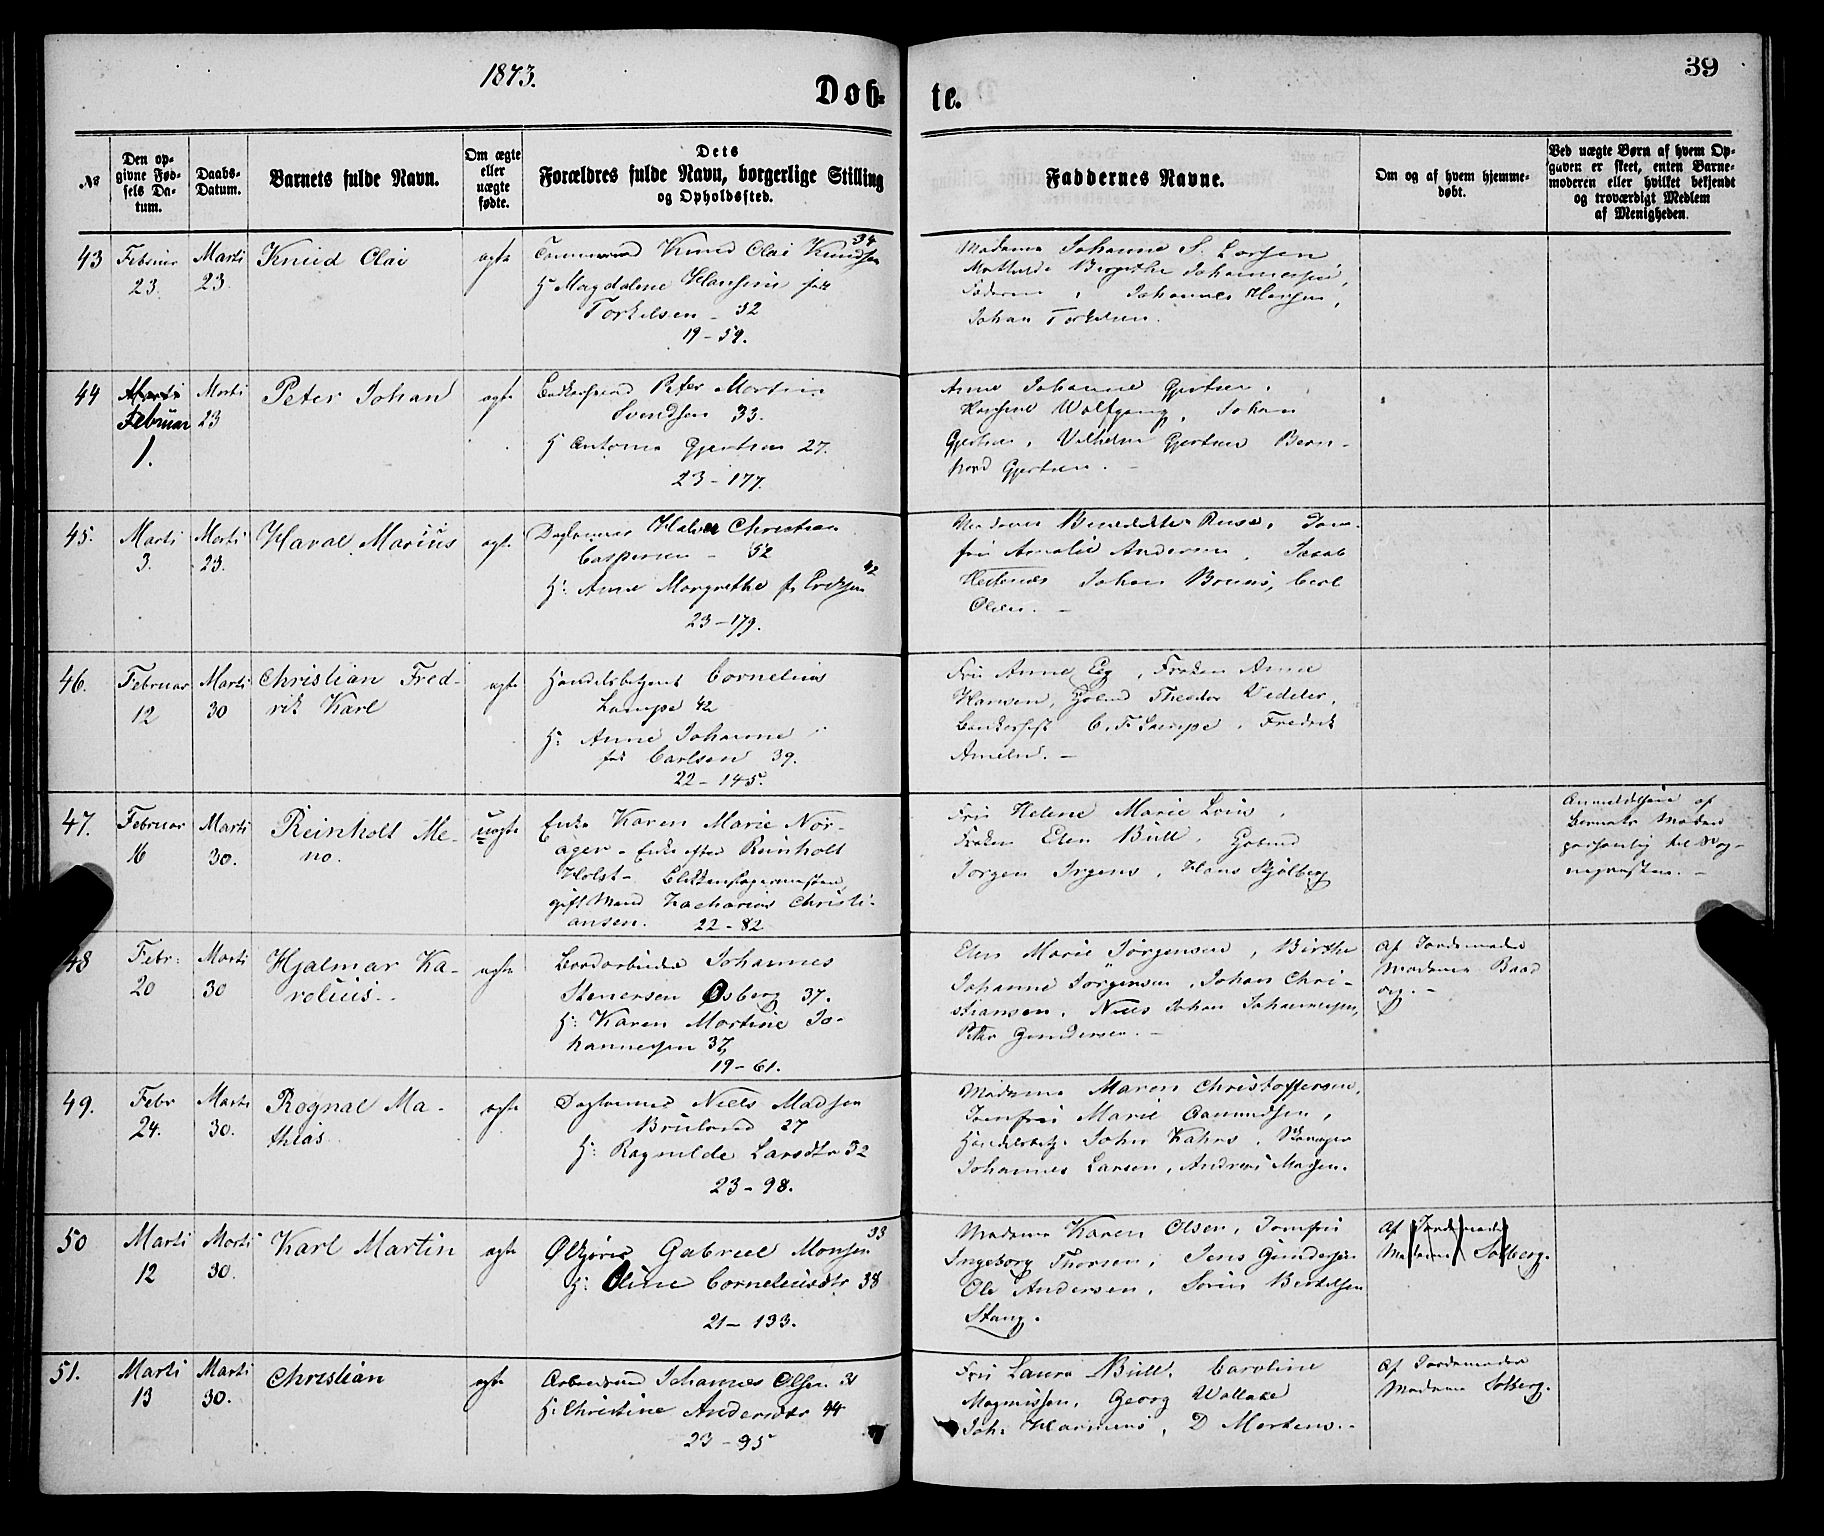 1873.
39
Døb-
te.
№
Den op-
givne Fød-
sels Da-
tum.
Daabs-
Datum.
Barnets fulde Navn.
Om ægte
eller
uægte
fødte.
Dets
Forældres fulde Navn, borgerlige Stilling
og Opholdssted.
Faddernes Navne.
Om og af hvem hjemme-
døbt.
Ved uægte Børn af hvem Op-
gaven er skeet, enten Barne-
moderen eller hvilket bekjendt
og troværdigt Medlem
af Menigheden.
43
Februar
23.
Marti
23.
Knud Olai
ægte
Knud Olai Knudsen 34
H Magdalene Hansine
Torkelsen - 32
19-59.
Madame Johanne S. Larsen
Bergithe Johannessen,
Faderen, Johannes Hansen,
Johan Torkelsen.
44
Februar
1.
Marti
23
Peter Johan
ægte
Peter Martin
Svendsen 33.
H Antonie Gjertsen 27.
23-177.
Anne Johanne Gjertsen,
Wolfgang, Johan
Gjertsen, Vilhelm Gjertsen Bern-
hard Gjertsen. -
45.
Marti
3.
Marti
23.
Haral Marius
ægte
Daglønner Christian
Caspersen - 52
H: Anne Margrethe f. 42
23-179.
Madame Benedikte Jom-
fru Amalie Andersen, Jacob
Johan Carl
Olsen. -
46.
Februar
12
Marti
30
Christian Fred-
rik Karl
ægte
Handelsbetjent Cornelius
Lampe 42
H: Anne Johanne
fød Carlsen 39.
22-145.
Fru Anne Eeg, Frøken Anne
Hansen, Theodor Vedeler,
C. F. Lampe, Fredrik
Ameln. -
47.
Februar
16
Marti
30.
Reinholt Me-
no.
uægte
Enke Karen Marie Nør-
ager - Enke efter Reinholt
Holst -
gift Mand Zacharias Christi-
ansen. 22-82
Fru Helene Marie
Frøken Elen Bull,
Jørgen Irgens, Hans Kjølberg
Anmeldelsen af
Barnets Moder
personlig til Sog-
nepresten. -
48
Febr:
20
Marti
30
Hjalmar Ka-
rolius.
ægte
Johannes
Stenersen Osberg 37.
H: Karen Martine Jo-
hannesen 37
19-61.
Elen Marie Jørgensen, Birthe
Johanne Jørgensen, Johan Chri-
stiansen, Niels Johan Johannesen,
Peter Gundersen. -
Af Jordemoder
Madame Baad
49.
Febr
24.
Marti
30.
Ragnal Ma-
thias
ægte
Daglønner Niels Madsen
27
H: Ragnilde Larsdtr 32
23-98.
Madame Maren Christoffersen,
Jomfru Marie Aamundsen,
Handelsbetj. John Kahrs,
Johannes Larsen, Andreas
50
Marti
12
Marti
30.
Karl Martin
ægte
Gabriel Monsen 33
H: Oline Corneliusdtr 38
21-133.
Madame Karen Olsen, Jomfru
Ingeborg Thorsen, Jens Gundersen
Ole Andersen, Søren Bertelsen
Stang.
Af Jordemoder
Madame Solberg.
51.
Marti
13
Marti
30.
Christian
ægte
Johannes Olsen 31
H: Christine Andersdtr 44
23-95
Fru Laura Bull, Caroline
Magnussen, Georg Wallace
Joh. Harmens, D Mertens. -
Af Jordemoder
Madame Solberg.